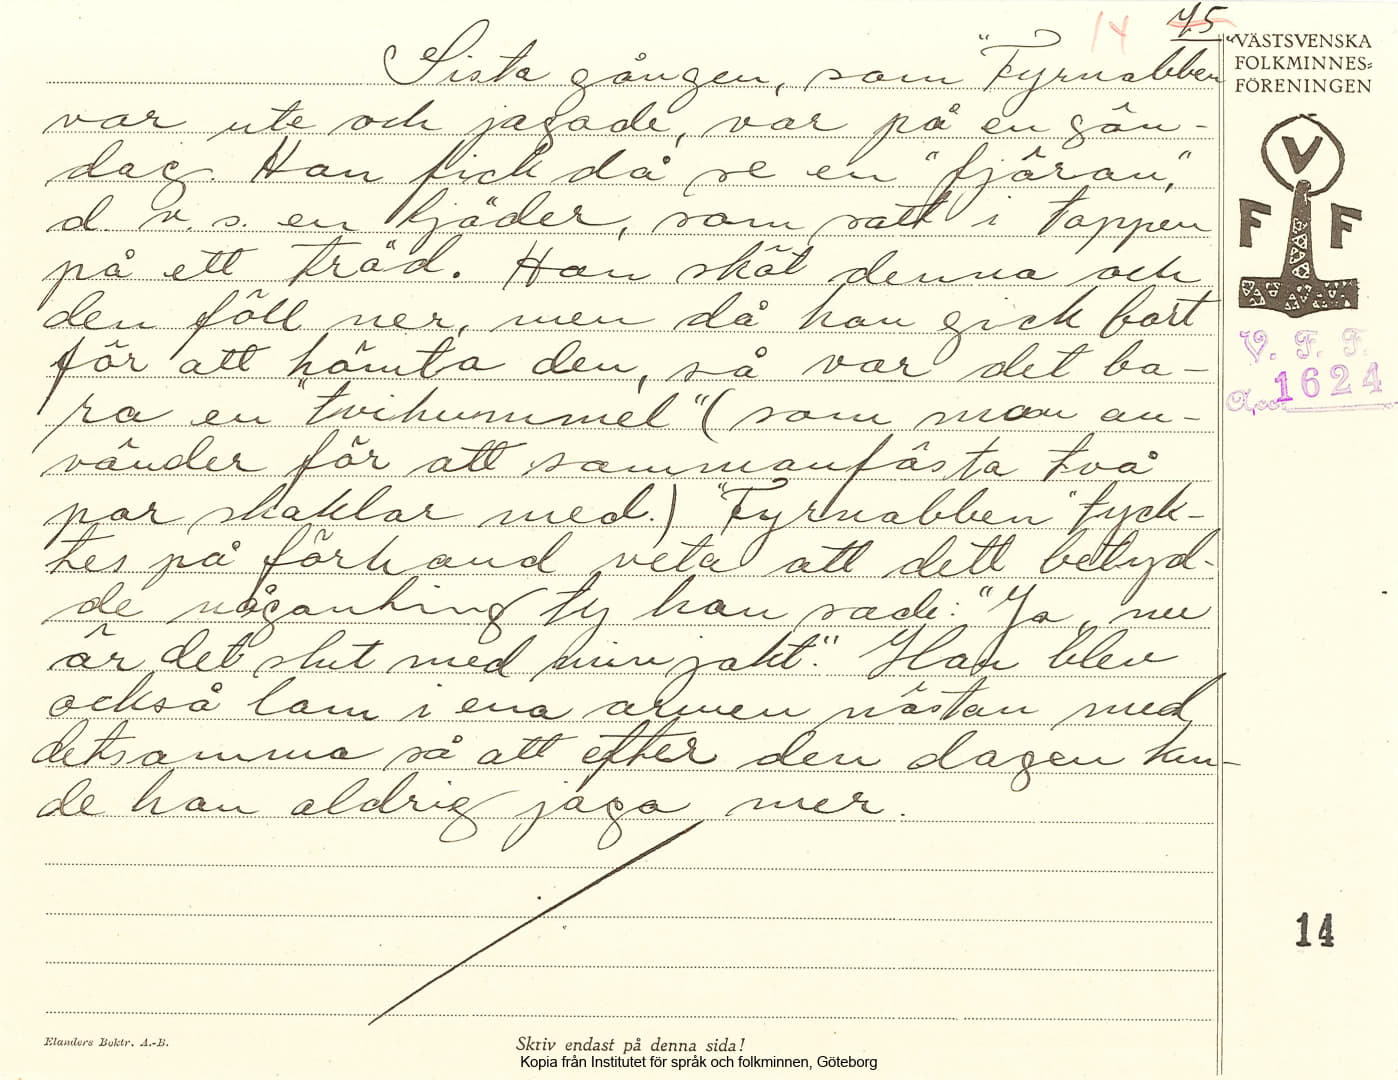 14 45
Sista gången, som "Fyrnabben"
var ute och jagade, var på en sön-
dag. Han fick då se en "fjäran,"
d. v. s. en tjäder, som satt i toppen
på ett träd. Han sköt denna och
den föll ner, men då han gick bort
för att hämta den, så var det ba-
ra en "tvihummel" (som man an-
vänder för att sammanfästa två
par skaklar med.) "Fyrnabben" tyck-
tes på förhand veta att dett betyd-
de någonting ty han sade: "Ja, nu
är det slut med min jakt." Han blev
också lam i ena armen nästan med
detsamma så att efter den dagen kun-
de han aldrig jaga mer.
VÄSTSVENSKA
FOLKMINNES=
FÖRENINGEN
V
F F
V. F. F.
1624
14
Elanders Boktr. A.-B.
Skriv endast på denna sida!
Kopia från Institutet för språk och folkminnen, Göteborg